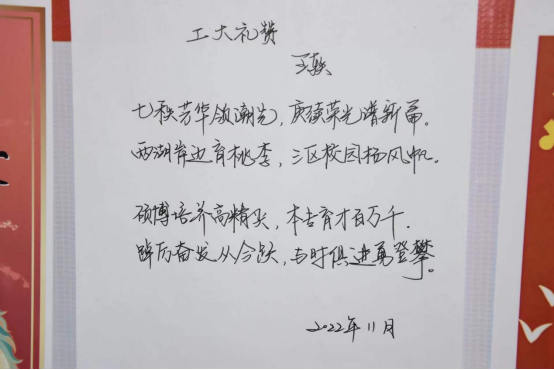 工大礼赞
王轶
七秩芳华领潮先，赓续荣光谱新篇。
西湖岸边育桃李，三区校园扬风帆。
硕博培养高精尖，本专育才百万千．
踔厉奋发从今跃，与时俱进勇登攀。
2022年11月